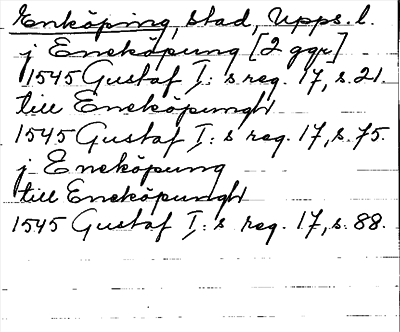 Enköping, stad, Upps. l.
j Eneköpung [2 ggr]
1545 Gustaf I: s reg. 17, s. 21.
till Eneköpungh
1545 Gustaf I: s reg. 17, s. 75.
j Eneköpung
till Eneköpungh
1545 Gustaf I: s reg. 17, s. 88.